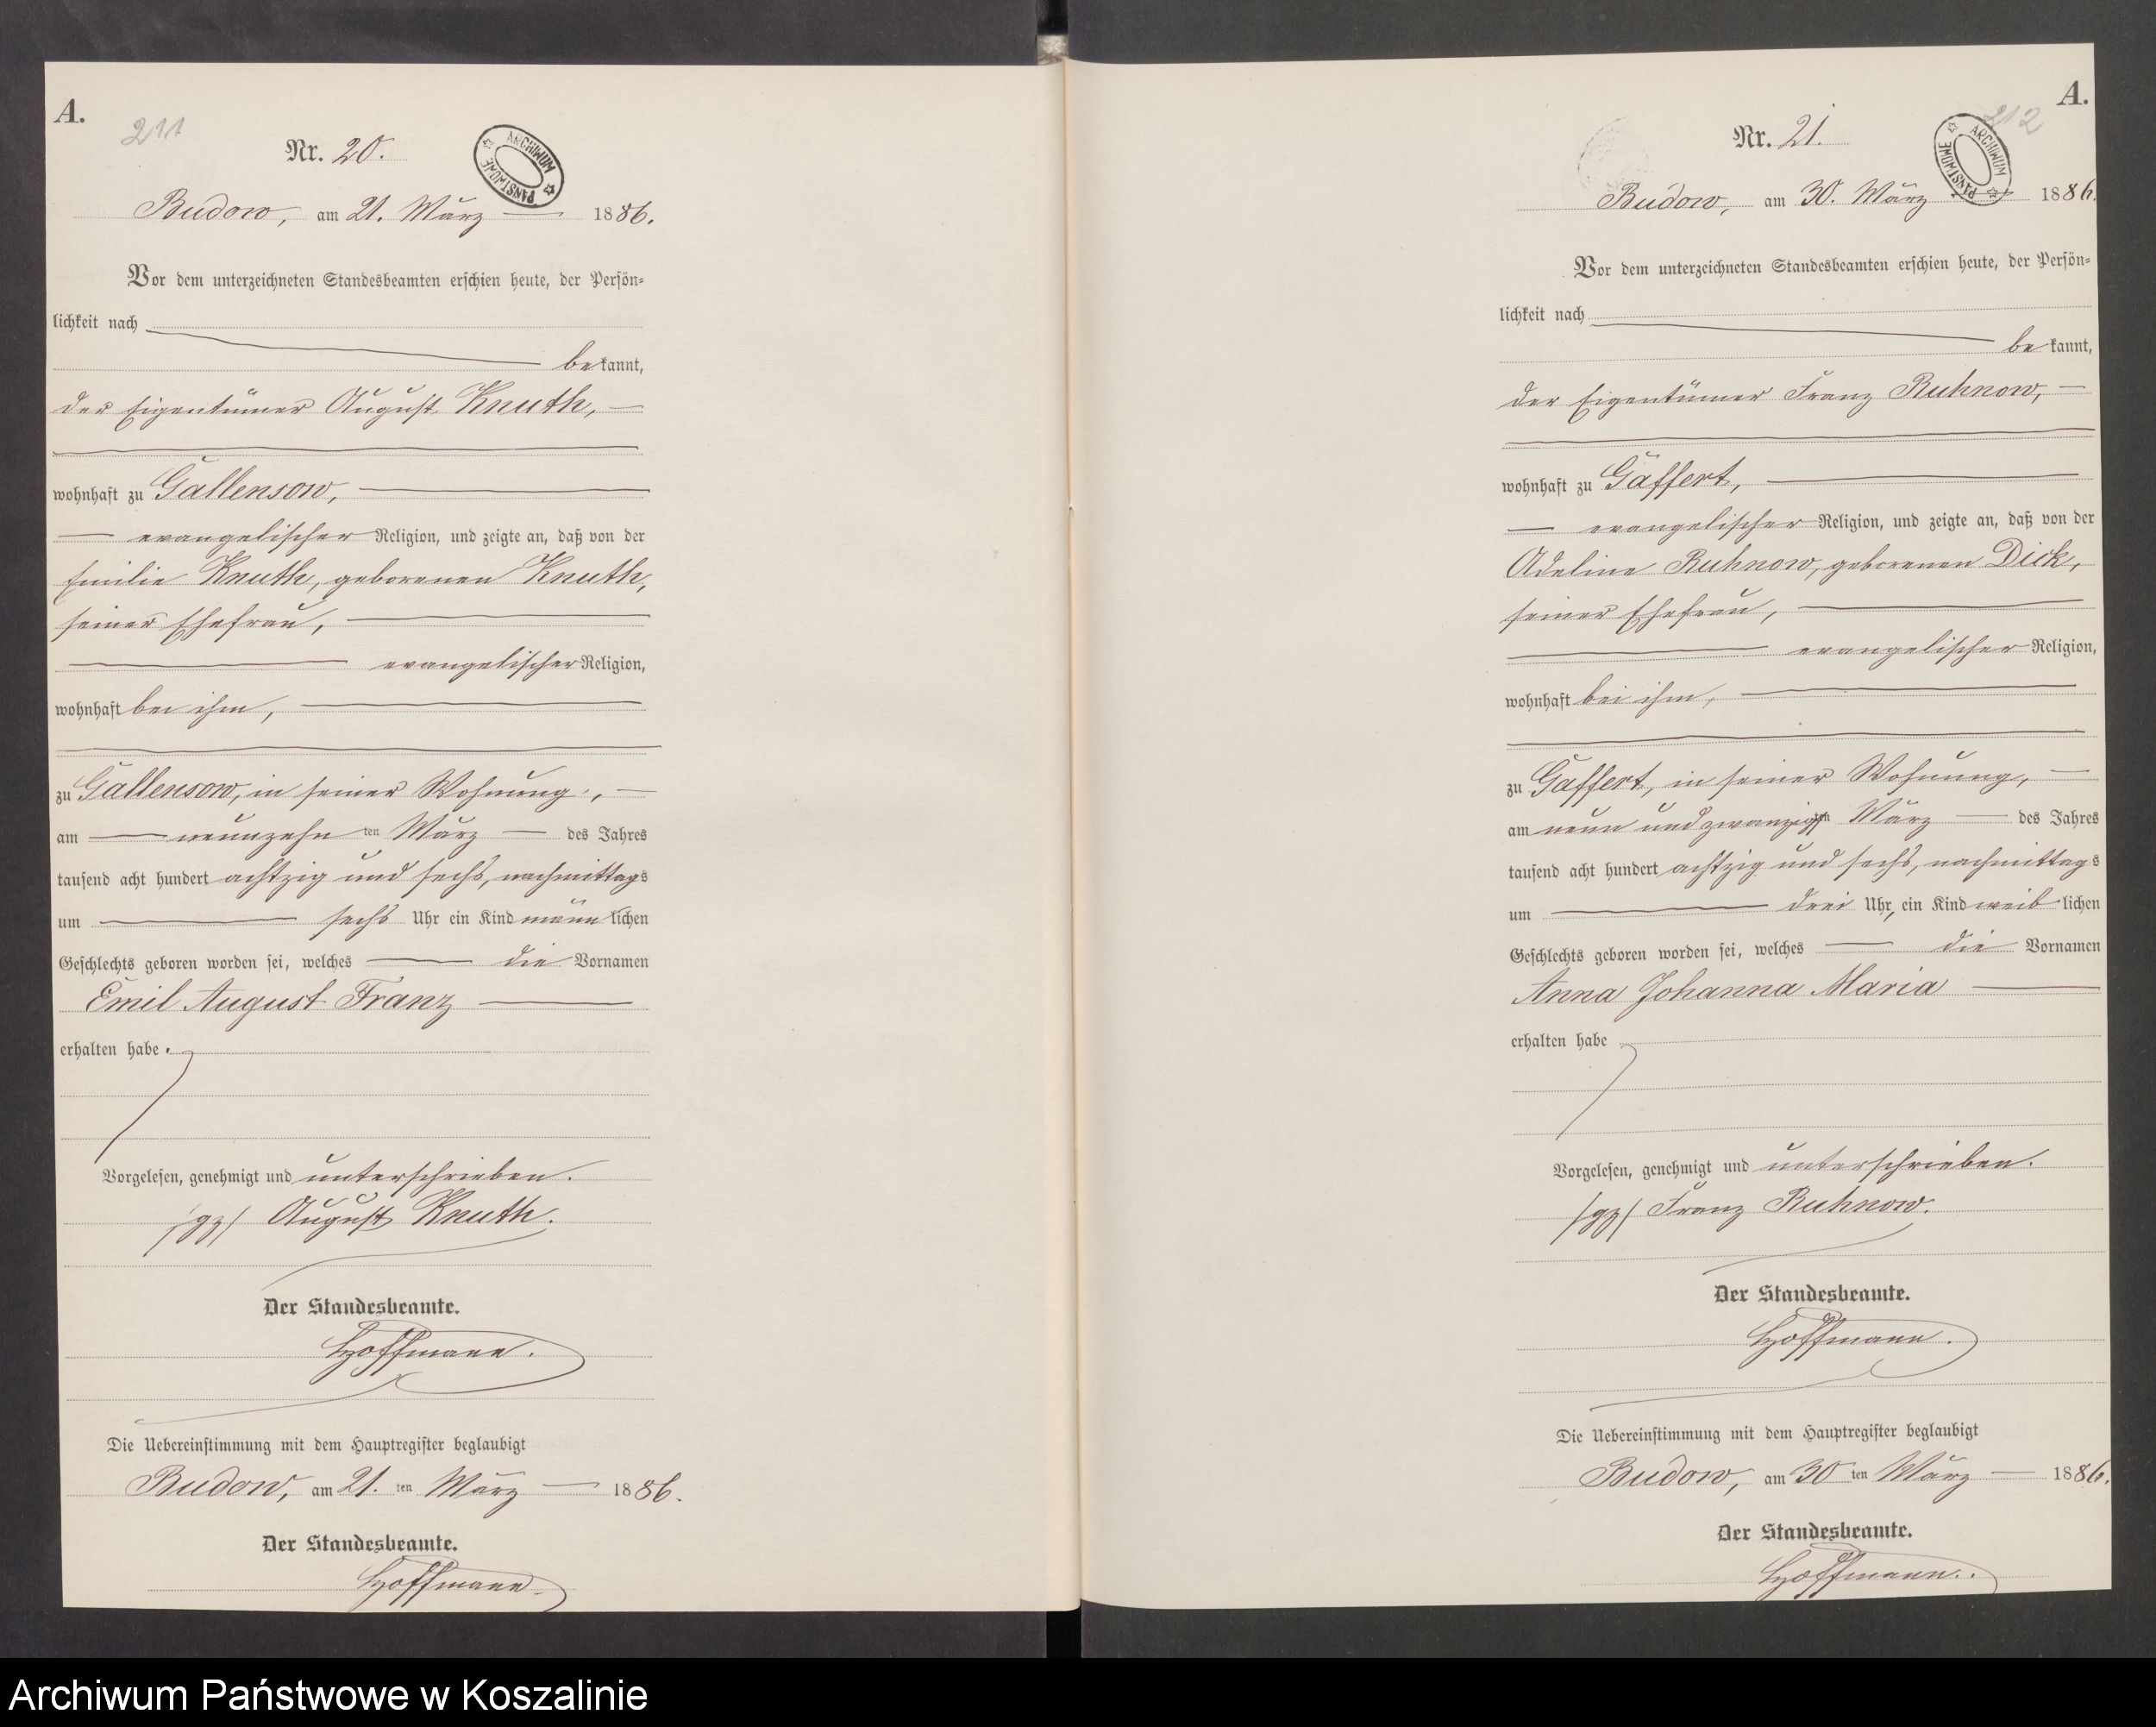 A.
211
Nr. 20.
ARCHIWUM PAŃSTWOWE
Budow, am 21. März 1886.
Vor dem unterzeichneten Standesbeamten erschien heute, der Persön-
lichkeit nach
bekannt,
der Eigentümer August Knuth,
wohnhaft zu Gallensow,
evangelischer Religion, und zeigte an, daß von der
Emilie Knuth, geborenen Knuth,
seiner Ehefrau,
evangelischer Religion,
wohnhaft bei ihm,
zu Gallensow, in seiner Wohnung,
am neunzehnten März des Jahres
tausend acht hundert achtzig und sechs, nachmittags
um sechs Uhr ein Kind männlichen
Geschlechts geboren worden sei, welches die Vornamen
Emil August Franz
erhalten habe.
Vorgelesen, genehmigt und unterschrieben.
/gz/ August Knuth.
Der Standesbeamte.
Hoffmann.
Die Uebereinstimmung mit dem Hauptregister beglaubigt
Budow, am 21. ten März 1886.
Der Standesbeamte.
Hoffmann.
A.
212
Nr. 21.
ARCHIWUM PAŃSTWOWE
Budow, am 30. März 1886.
Vor dem unterzeichneten Standesbeamten erschien heute, der Persön-
lichkeit nach
bekannt,
der Eigentümer Franz Ruhnow,
wohnhaft zu Gaffert,
evangelischer Religion, und zeigte an, daß von der
Adeline Ruhnow, geborenen Dick,
seiner Ehefrau,
evangelischer Religion,
wohnhaft bei ihm,
zu Gaffert, in seiner Wohnung,
am neun und zwanzigsten März des Jahres
tausend acht hundert achtzig und sechs, nachmittags
um drei Uhr, ein Kind weiblichen
Geschlechts geboren worden sei, welches die Vornamen
Anna Johanna Maria
erhalten habe
Vorgelesen, genehmigt und unterschrieben.
/gz/ Franz Ruhnow.
Der Standesbeamte.
Hoffmann.
Die Uebereinstimmung mit dem Hauptregister beglaubigt
Budow, am 30 ten März 1886.
Der Standesbeamte.
Hoffmann.
Archiwum Państwowe w Koszalinie